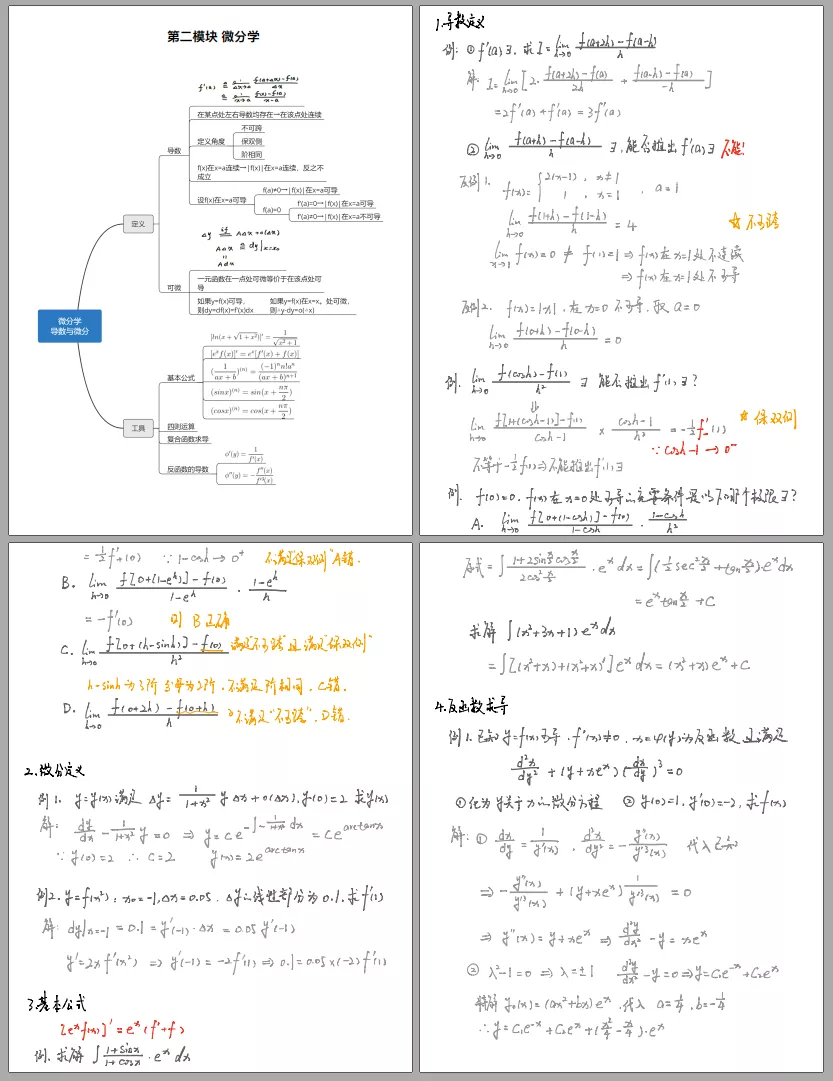 第二模块 微分学
f'(a) ≜ lim Δx→0 f(a+Δx)-f(a) / Δx
≜ lim x→a f(x)-f(a) / x-a
在某点处左右导数均存在→在该点处连续
不可跨
定义角度 保双侧
阶相同
导数
f(x)在x=a连续→|f(x)|在x=a连续，反之不
成立
f(a)≠0→|f(x)|在x=a可导
设f(x)在x=a可导
f'(a)=0→|f(x)|在x=a可导
f(a)=0
f'(a)≠0→|f(x)|在x=a不可导
定义
Δy = AΔx+o(Δx)
AΔx ≜ dy|x=x₀
Adx
可微
一元函数在一点处可微等价于在该点处可
导
如果y=f(x)可导， 如果y=f(x)在x=x。处可微，
则dy=df(x)=f'(x)dx 则▵y-dy=o(▵x)
微分学
导数与微分
[ln(x+√(1+x²))]' = 1/√(x²+1)
[e^x f(x)]' = e^x[f'(x)+f(x)]
基本公式
(1/(ax+b))^(n) = (-1)^n n!a^n/(ax+b)^(n+1)
(sinx)^(n) = sin(x+nπ/2)
(cosx)^(n) = cos(x+nπ/2)
工具
四则运算
复合函数求导
φ'(y) = 1/f'(x)
反函数的导数
φ''(y) = -f''(x)/f'³(x)
1.导数定义
例: ① f'(a)∃, 求 I = lim h→0 f(a+2h)-f(a-h) / h
解: I = lim h→0 [2· f(a+2h)-f(a) / 2h + f(a-h)-f(a) / -h]
=2f'(a)+f'(a)=3f'(a)
② lim h→0 f(a+h)-f(a-h) / h ∃, 能否推出f'(a)∃ 不能!
反例1. f(x)= { 2(x-1), x≠1
1, x=1 , a=1
lim h→0 f(1+h)-f(1-h) / h = 4 ☆不可跨
lim x→1 f(x)=0 ≠ f(1)=1 ⇒ f(x)在x=1处不连续
⇒ f(x)在x=1处不可导
反例2. f(x)=|x|, 在x=0不可导, 取a=0
lim h→0 f(0+h)-f(0-h) / h = 0
例. lim h→0 f(cosh)-f(1) / h² ∃ 能否推出f'(1)∃?
⇓
lim h→0 f[1+(cosh-1)]-f(1) / cosh-1 × cosh-1 / h² = -½f'₋(1) ☆保双侧
∵ cosh-1→0⁻
不等于-½f'(1)⇒不能推出f'(1)∃
例. f(0)=0, f(x)在x=0处可导的充要条件是以下哪个极限∃?
A. lim h→0 f[0+(1-cosh)]-f(0) / 1-cosh · 1-cosh / h²
=½f'₊(0) ∵ 1-cosh→0⁺ 不满足"保双侧"A错.
B. lim h→0 f[0+(1-e^h)]-f(0) / 1-e^h · 1-e^h / h
= -f'(0) 则B正确
C. lim h→0 f[0+(h-sinh)]-f(0) / h² 满足"不可跨"且满足"保双侧"
h-sinh为3阶 分母为2阶, 不满足阶相同, C错.
D. lim h→0 f(0+2h)-f(0+h) / h 不满足"不可跨", D错.
2.微分定义
例1. y=y(x)满足 Δy = 1/(1+x²) yΔx+o(Δx), y(0)=2 求y(x)
解: dy/dx - 1/(1+x²) y=0 ⇒ y=Ce^(-∫-1/(1+x²)dx) = Ce^(arctanx)
∵ y(0)=2 ∴ C=2 y(x)=2e^(arctanx)
例2. y=f(x²), x₀=-1, Δx=0.05, Δy的线性部分为0.1, 求f'(1)
解: dy|x=-1 =0.1=y'(-1)·Δx =0.05y'(-1)
y'=2xf'(x²) ⇒ y'(-1)=-2f'(1)⇒0.1=0.05×(-2)f'(1)
3.基本公式
[e^x f(x)]'=e^x(f'+f)
例. 求解 ∫ 1+sinx / 1+cosx · e^x dx
原式=∫ 1+2sin x/2 cos x/2 / 2cos² x/2 · e^x dx =∫(½sec² x/2 + tan x/2)·e^x dx
= e^x tan x/2 +C
求解 ∫(x²+3x+1)e^x dx
=∫[(x²+x)+(x²+x)']e^x dx=(x²+x)e^x+C
4.反函数求导
例1. 已知y=f(x)可导, f'(x)≠0, x=φ(y)为反函数且满足
d²x/dy² + (y+xe^x)(dx/dy)³=0
①化为y关于x的微分方程 ② y(0)=1, y'(0)=-2, 求f(x)
解: ① dx/dy = 1/y'(x), d²x/dy² = -y''(x)/y'³(x) 代入已知
⇒ -y''(x)/y'³(x) +(y+xe^x) 1/y'³(x) =0
⇒ y''(x)=y+xe^x ⇒ d²y/dx² -y=xe^x
② λ²-1=0 ⇒ λ=±1 d²y/dx² -y=0⇒y=C₁e^-x+C₂e^x
特解y₀(x)=(ax²+bx)e^x, 代入 a=¼, b=-¼
∴y=C₁e^-x+C₂e^x+(x²/4 - x/4)·e^x